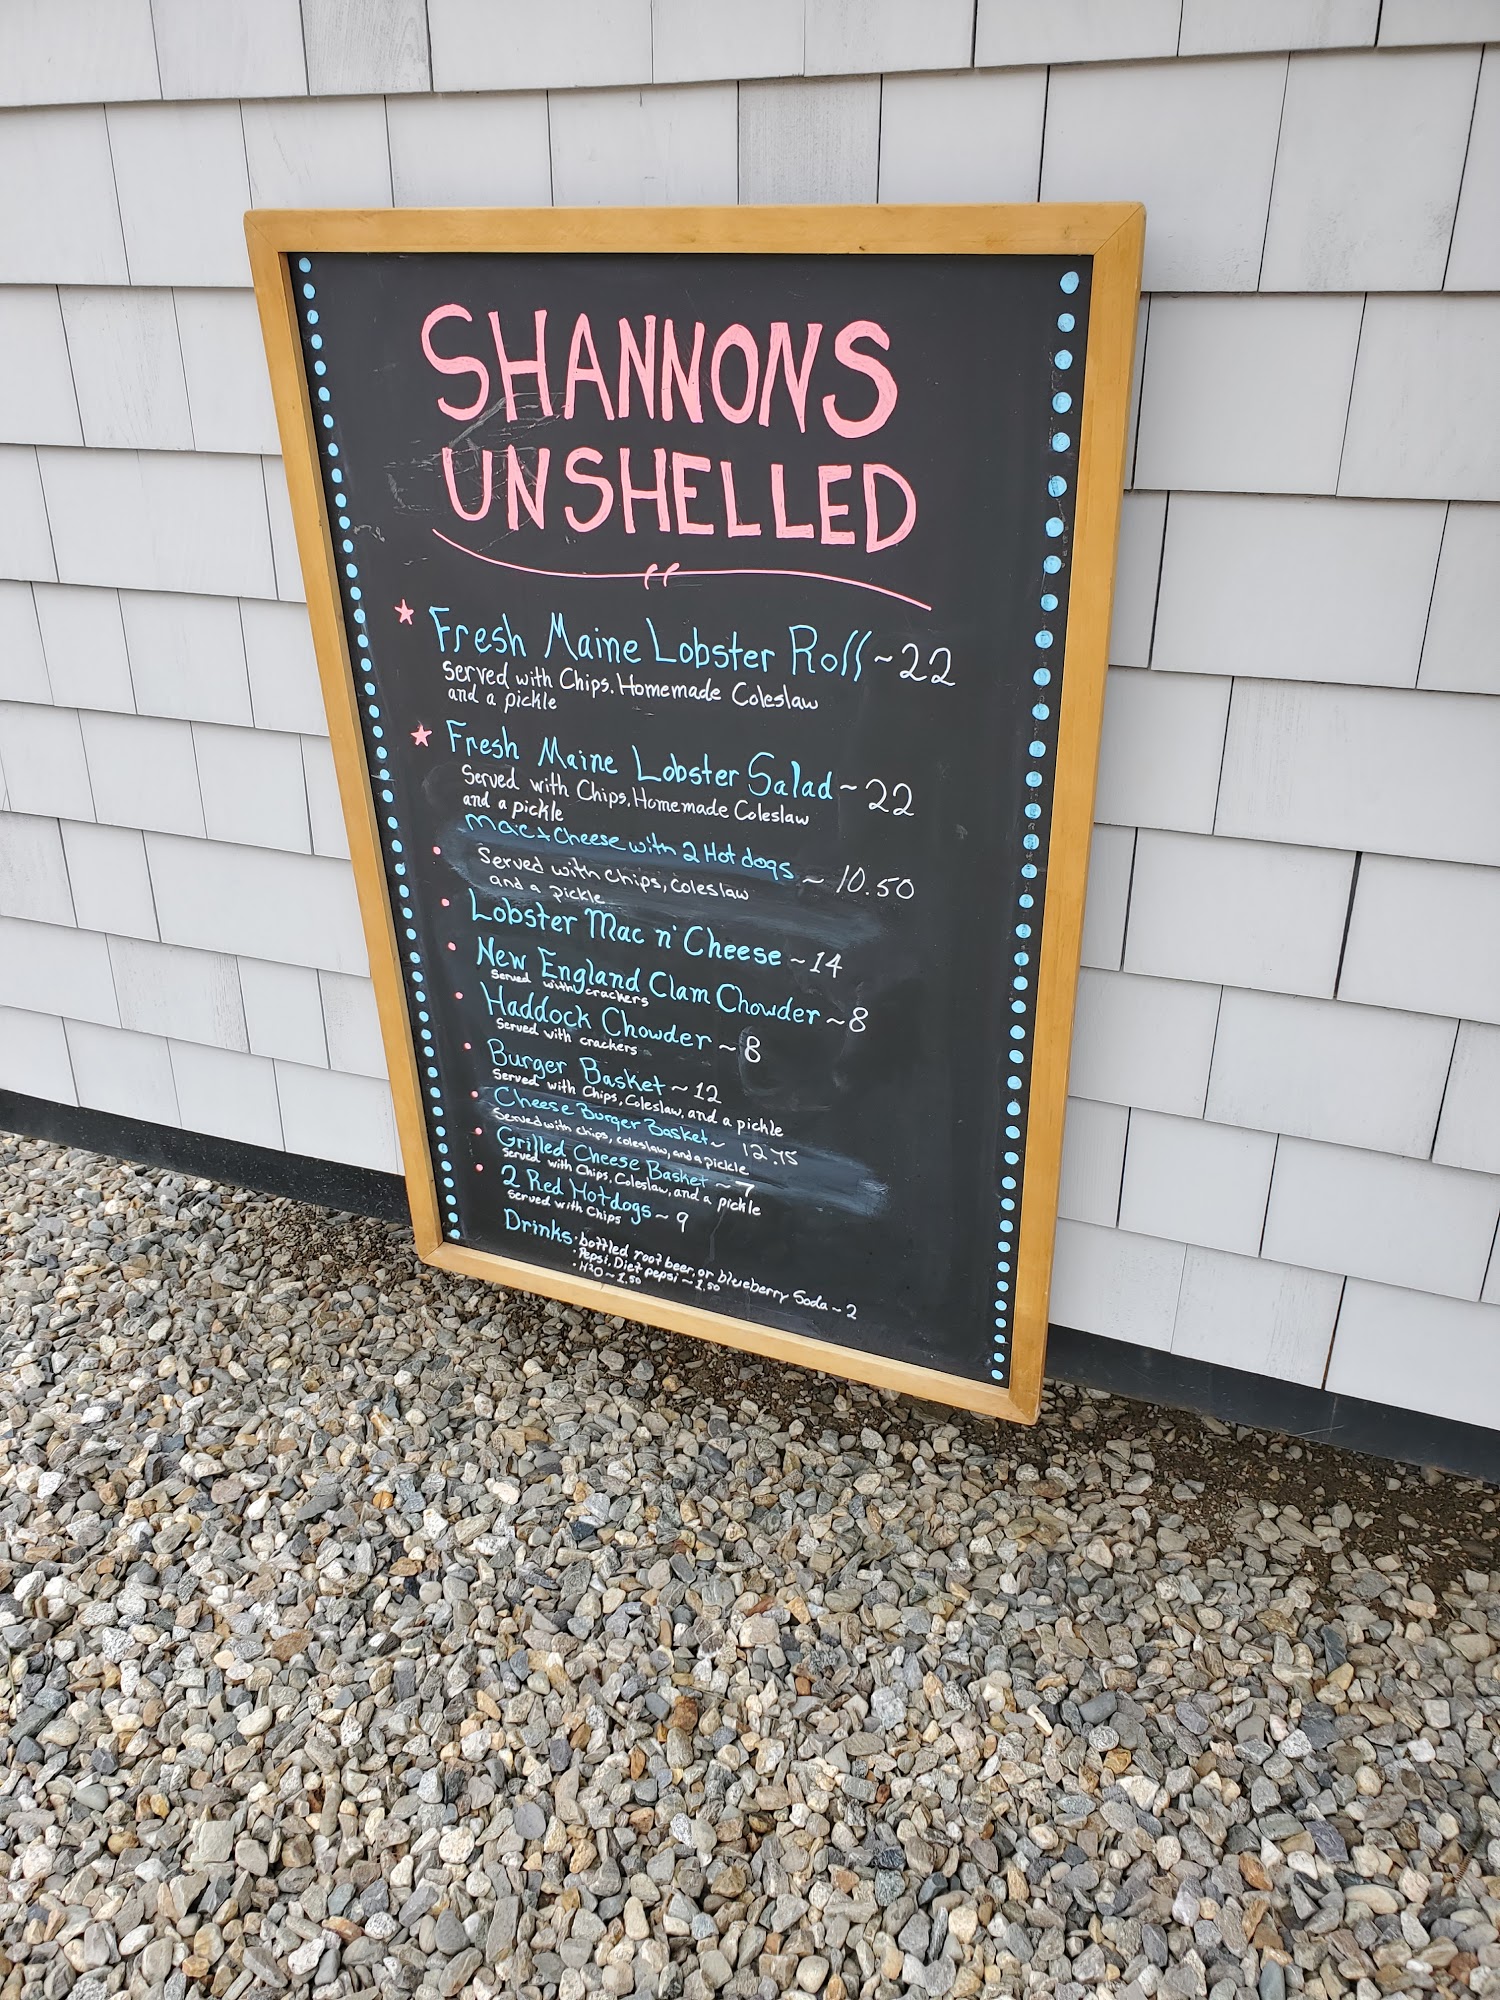 SHANNONS
UNSHELLED
Fresh Maine Lobster Roll ~ 22
Served with Chips, Homemade Coleslaw
and a pickle
Fresh Maine Lobster Salad ~ 22
Served with Chips, Homemade Coleslaw
and a pickle
Mac + Cheese with 2 Hot dogs ~ 10.50
Served with chips, coleslaw
and a pickle
Lobster Mac n' Cheese ~ 14
New England Clam Chowder ~ 8
Served with crackers
Haddock Chowder ~ 8
Served with crackers
Burger Basket ~ 12
Served with Chips, Coleslaw, and a pickle
Cheese Burger Basket ~ 12.75
Served with chips, coleslaw, and a pickle
Grilled Cheese Basket ~ 7
Served with Chips, Coleslaw, and a pickle
2 Red Hotdogs ~ 9
Served with Chips
Drinks • bottled root beer, or blueberry Soda ~ 2
• Pepsi, Diet pepsi ~ 1.50
• H2O ~ 1.50